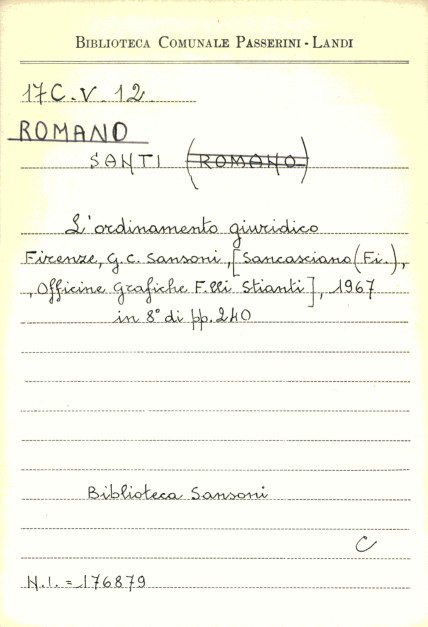 BIBLIOTECA COMUNALE PASSERINI - LANDI
17C.V.12
ROMANO
SANTI (ROMANO)
L'ordinamento giuridico
Firenze, G.C. Sansoni, [Sancasciano (Fi.),
, Officine Grafiche F.lli Stianti], 1967
in 8° di pp. 240
Biblioteca Sansoni
C
N.I. = 176879